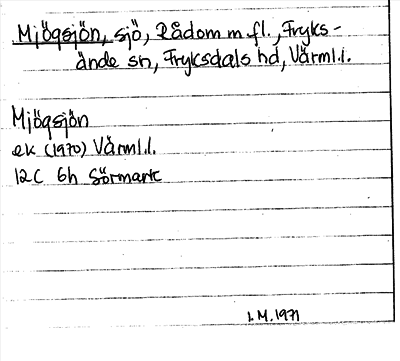 Mjögsjön, sjö, Rådom m.fl., Fryks-
ände sn, Fryksdals hd, Värml.l.
Mjögsjön
ek (1970) Värml.l.
12C 6h Sörmark
I.M.1971